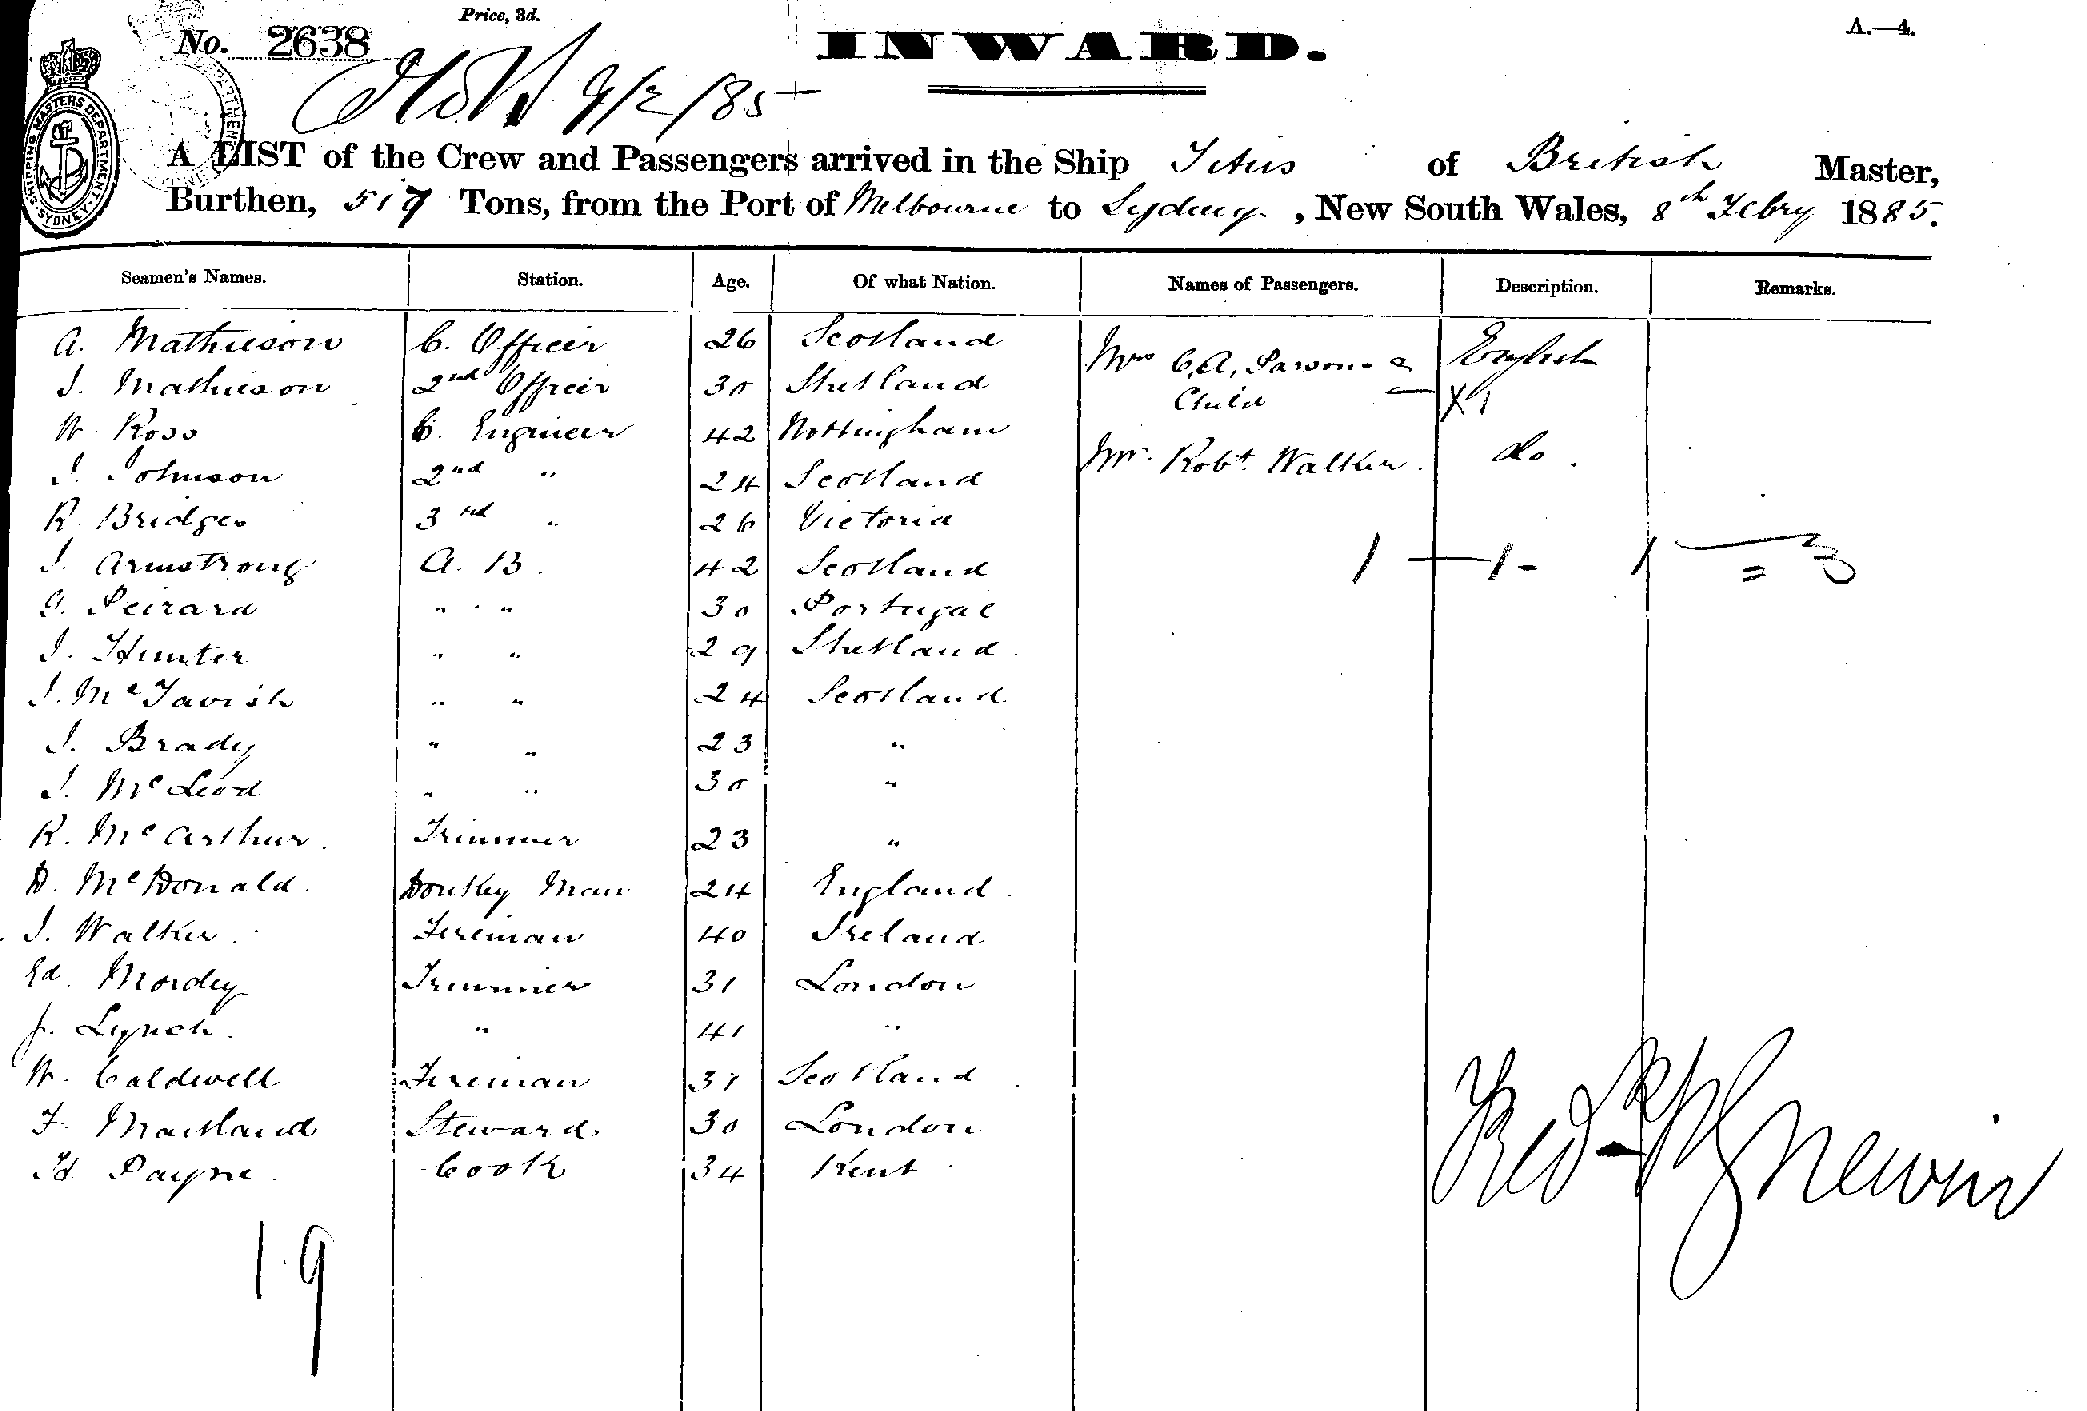 Price, 3d.
No. 2638
INWARD.
A.—4.
9/2/85
SHIPPING MASTERS DEPARTMENT SYDNEY
A LIST of the Crew and Passengers arrived in the Ship Titus of British Master,
Burthen, 517 Tons, from the Port of Melbourne to Sydney, New South Wales, 8th Febry 1885.
Seamen's Names. Station. Age. Of what Nation. Names of Passengers. Description. Remarks.
A. Mathieson C. Officer 26 Scotland Mrs C.A. Parsons & English
J. Mathieson 2nd Officer 30 Shetland Child
W. Ross C. Engineer 42 Nottingham
J. Johnson 2nd " 24 Scotland Mr. Robt. Walker. do.
R. Bridges 3rd " 26 Victoria
J. Armstrong A. B. 42 Scotland 1 — 1 - 1 = 3
G. Peirard " " 30 Portugal
J. Hunter " " 29 Shetland
J. McTavish " " 24 Scotland
J. Brady " " 23 "
J. McLeod " " 30 "
R. McArthur. Trimmer 23 "
D. McDonald. Donkey Man 24 England
J. Walker. Fireman 40 Ireland
Ed. Mordey Trimmer 31 London
J. Lynch. " 41 "
W. Caldwell Fireman 31 Scotland
F. Maitland Steward 30 London
H. Payne Cook 34 Kent
19
Fred